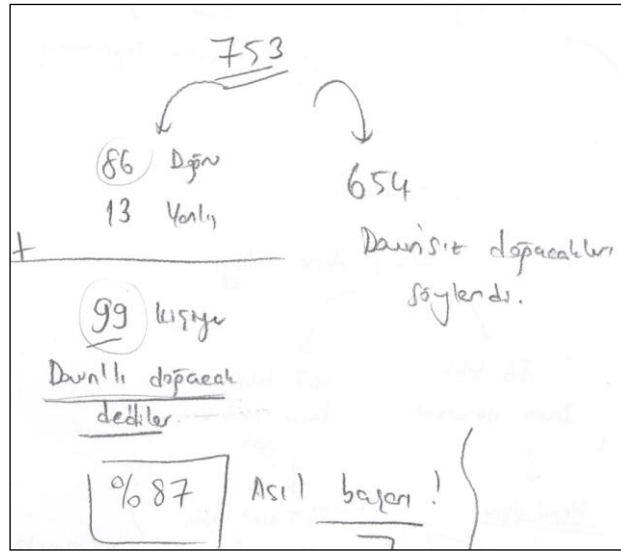 753
86 Doğru
13 Yanlış
+
99 kişiye
Down'lı doğacak
dediler.
654
Down'sız doğacakları
söylendi.
%87 Asıl başarı!